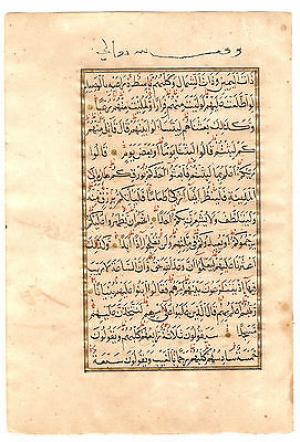 ذات اليمين وذات الشمال وكلبهم باسط ذراعيه بالوصيد
لو اطلعت عليهم لوليت منهم فرارا ولملئت منهم رعبا
وكذلك بعثناهم ليتساءلوا بينهم قال قائل منهم
كم لبثتم قالوا لبثنا يوما أو بعض يوم قالوا
ربكم أعلم بما لبثتم فابعثوا أحدكم بورقكم هذه إلى
المدينة فلينظر أيها أزكى طعاما فليأتكم برزق منه
وليتلطف ولا يشعرن بكم أحدا إنهم إن يظهروا عليكم
يرجموكم أو يعيدوكم في ملتهم ولن تفلحوا إذا أبدا وكذلك
أعثرنا عليهم ليعلموا أن وعد الله حق وأن الساعة لا ريب
فيها إذ يتنازعون بينهم أمرهم فقالوا ابنوا عليهم بنيانا
ربهم أعلم بهم قال الذين غلبوا على أمرهم لنتخذن عليهم
مسجدا سيقولون ثلاثة رابعهم كلبهم ويقولون
خمسة سادسهم كلبهم رجما بالغيب ويقولون سبعة